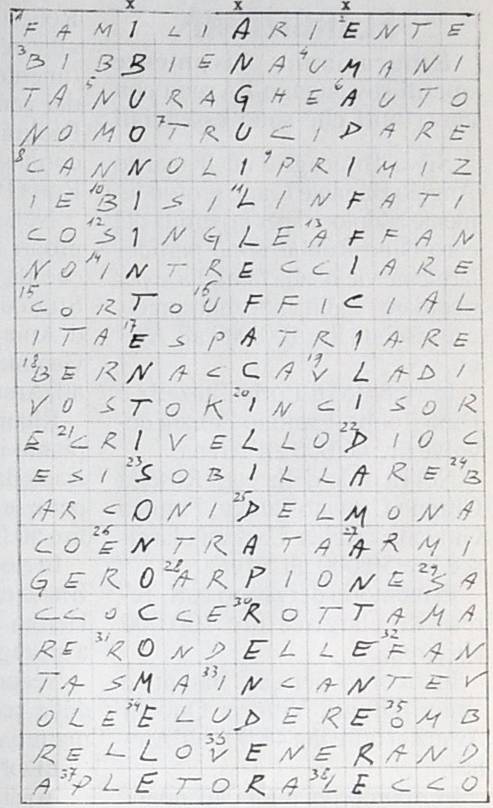 x x x
1 F A M I L I A R I 2 E N T E
3 B I B B I E N A 4 U M A N I
T A 5 N U R A G H E 6 A U T O
N O M O 7 T R U C I D A R E
8 C A N N O L I 9 P R I M I Z
I E 10 B I S I 11 L I N F A T I
C O 12 S I N G L E 13 A F F A N
N O 14 I N T R E C C I A R E
15 C O R T O 16 U F F I C I A L
I T A 17 E S P A T R I A R E
18 B E R N A C C A 19 V L A D I
V O S T O K 20 I N C I S O R
E 21 C R I V E L L O 22 D I O C
E S I 23 S O B I L L A R E 24 B
A R C O N I 25 D E L M O N A
C O 26 E N T R A T A 27 A R M I
G E R O 28 A R P I O N E 29 S A
C C O C C E 30 R O T T A M A
R E 31 R O N D E L L E 32 F A N
T A S M A 33 I N C A N T E V
O L E 34 E L U D E R E 35 O M B
R E L L O 36 V E N E R A N D
A 37 P L E T O R A 38 L E C C O